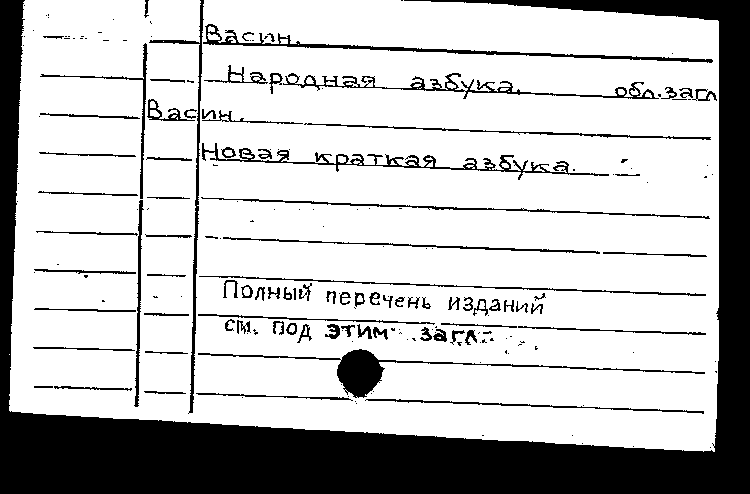 Васин.
Народная азбука. обл.загл
Васин.
Новая краткая азбука.
Полный перечень изданий
см. под этим загл.